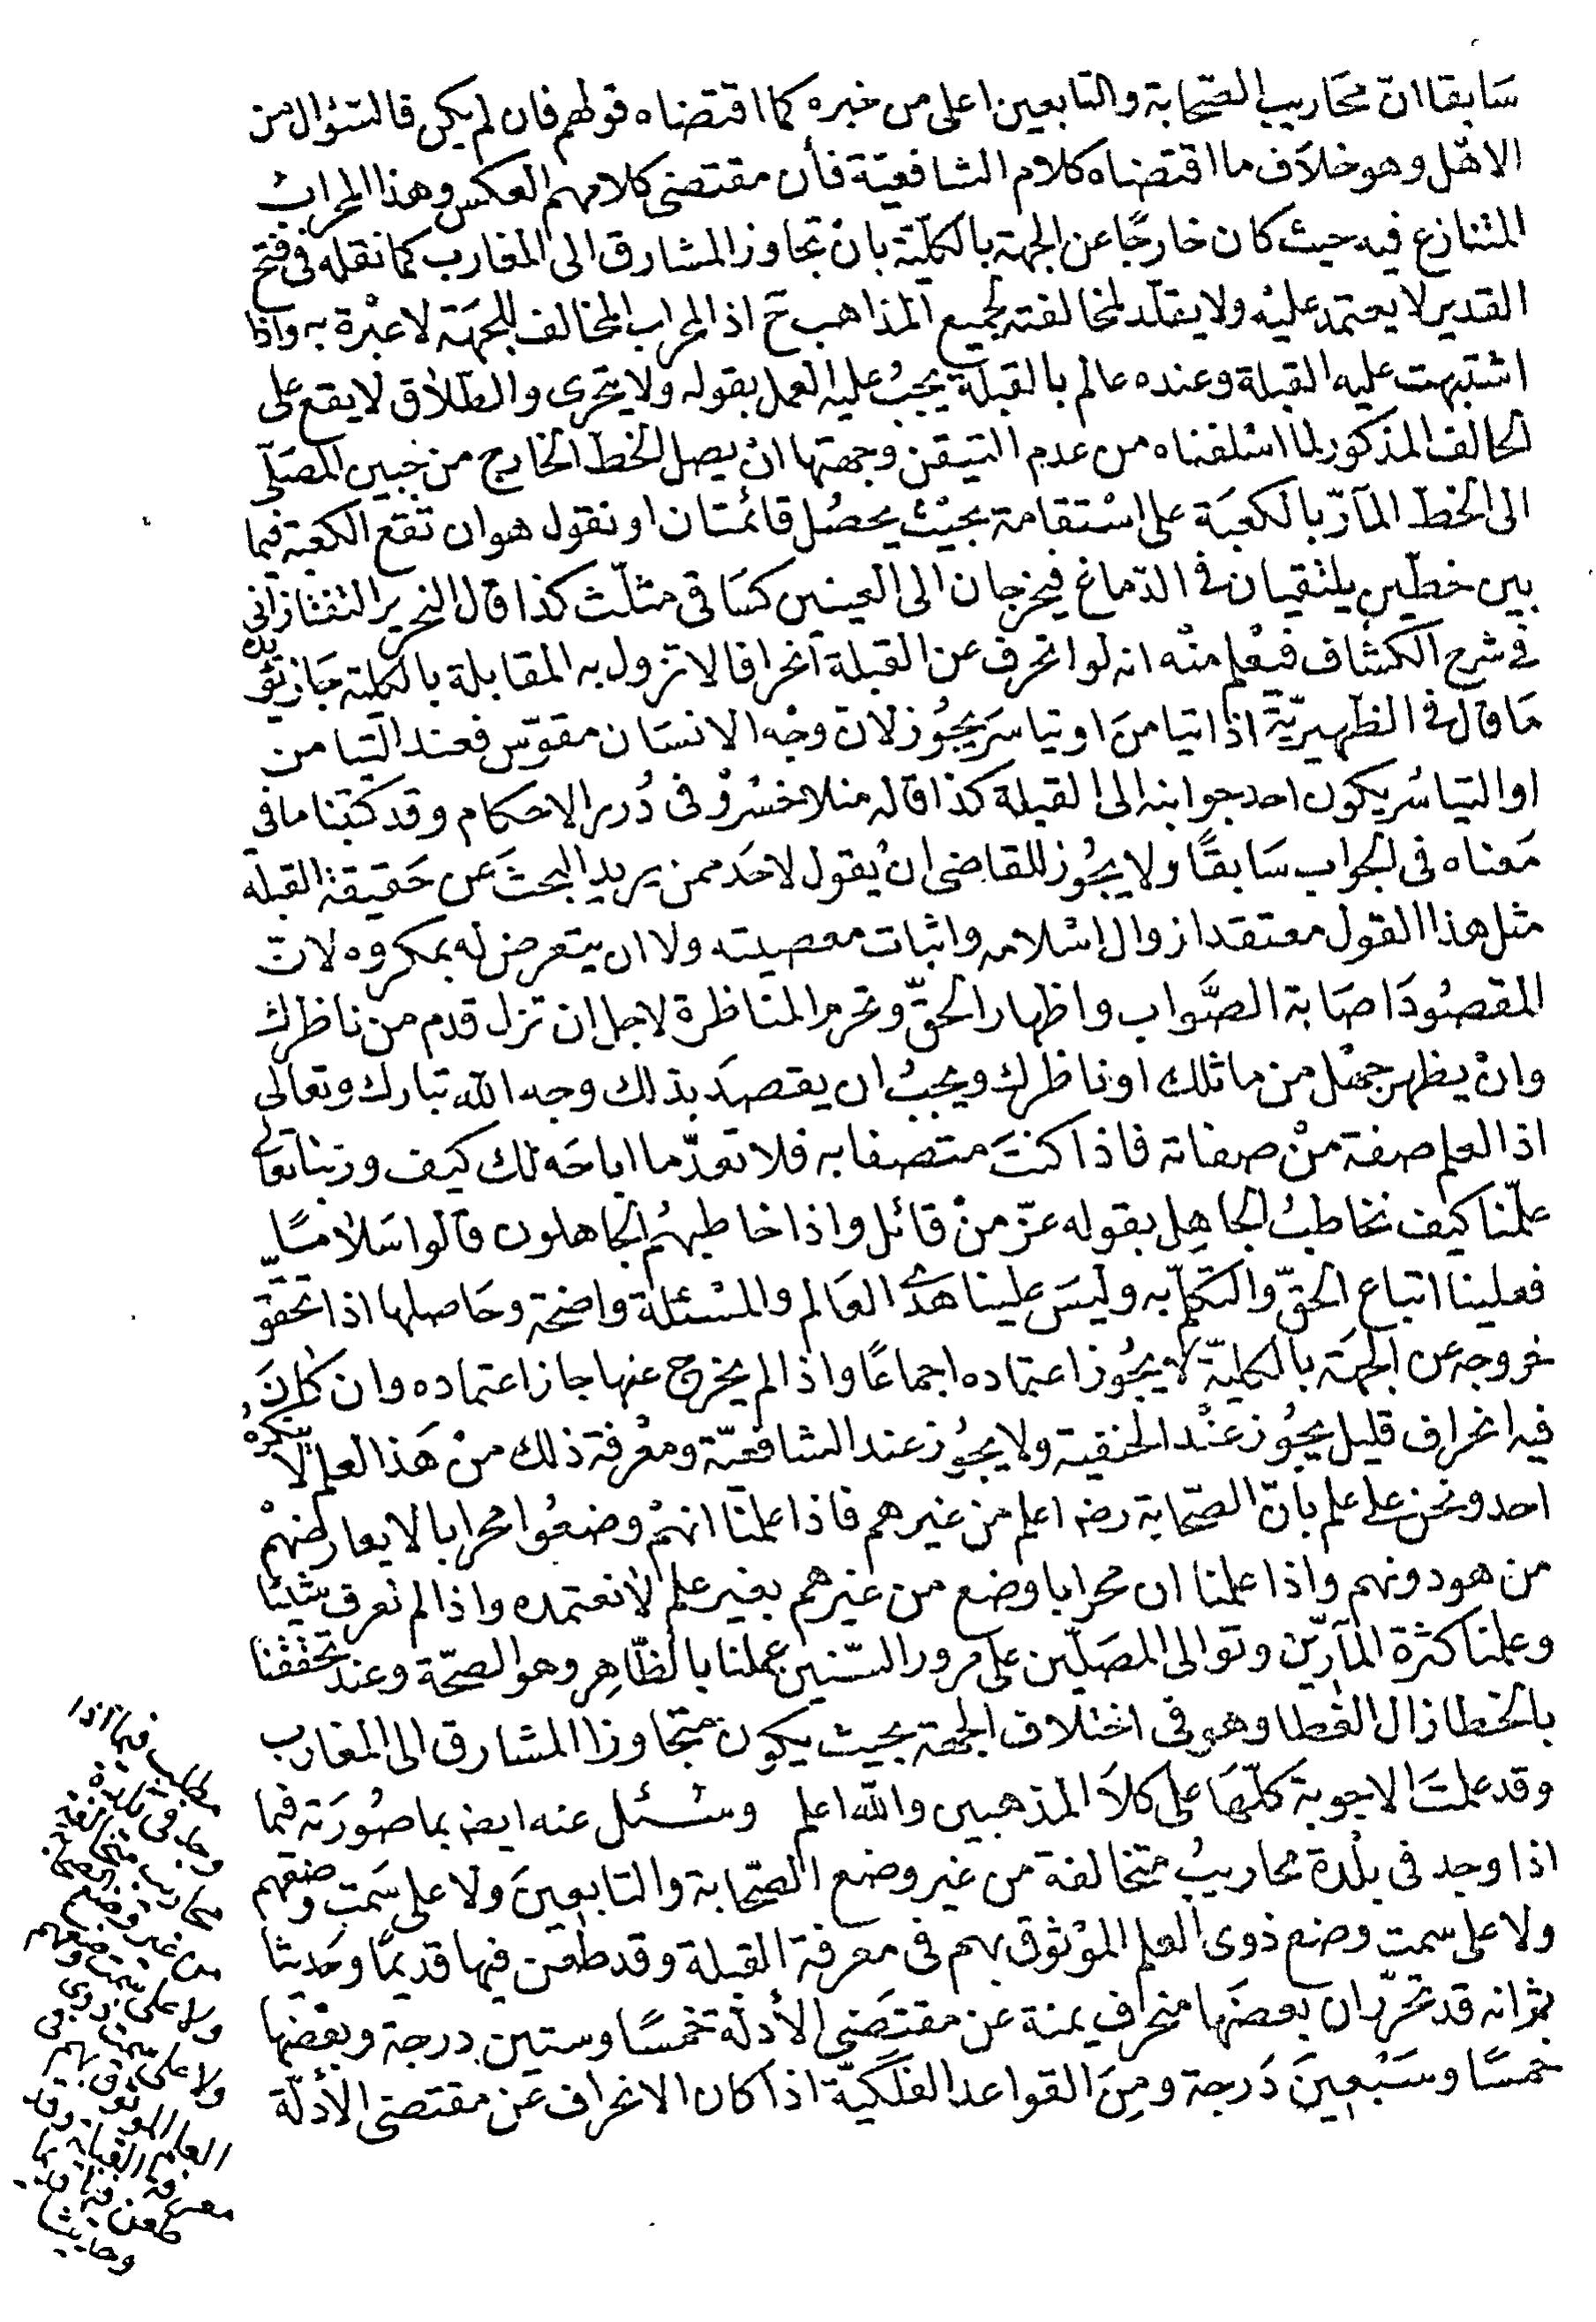 سَابقا ان مَحَاريب الصّحابة والتابعين اعلى من خبره كما اقتضاه قولهم فان لم يكن فالسّؤال من
الاهّل وهو خلاَف ما اقتضاه كلام الشافعيّة فأن مقتضى كلامهم العكس وهذا المحراب
المتنازع فيه حيث كان خارجًا عن الجهة بالكلّيّة بان تجاوز المشارق الى المغارب كما نقله فى فتح
القدير لا يعتمد عليْه ولا يقلّد لمخالفته لجميع المذاهب ح اذ المحراب المخالف للجهَة لا عبْرة به واذا
اشتبهت عليه القبلة وعنده عالم بالقبلة يجبُ عليه العمل بقوله ولا يتحرى والطّلاق لا يقع على
الحالف المذكور لما اسْلفناه من عدم التيقن وجهتها انْ يصل الخطّ الخارج من جبين المصَلّى
الى الخطّ المآرّ بالكعبَة على اسْتقامة بحيْث يحصُل قائمتان او نقول هو ان تقع الكعبة فيما
بين خطّين يلتقيان فى الدّماغ فيخرجان الى العينين كسَاقى مثلّث كذا قال النحرير التفتازانى
فى شرح الكشاف فيعْلم منْه انه لو انحرف عن القبلة انحرافا لا تزول به المقابلة بالكلّية جَاز يؤيده
مَا قال فى الظّهيريّة اذا تيامنَ او تياسَر يجُوز لان وجْه الانسَان مقوّس فعند التيامن
او التياسُر يكون احد جوابنه الى القبلة كذا قاله منلا خسْروْ فى دُرر الاحكام وقد كتبنا ما فى
مَعناه فى الجواب سَابقًا ولا يجُوز للقاضى انْ يُقول لاحَد ممن يريد البحثَ عن حَقيقة القبلة
مثل هذا القول معتقدا زوال اسْلامه واثبات معصيته ولا ان يتعرض له بمكروه لان
المقصُودَ اصَابة الصَّواب واظهار الحقّ وتحرم المناظرة لاجل ان تزل قدم من ناظرك
وانْ يظهر جهْل من ماثلك او ناظرك ويجبُ ان يقصدَ بذلك وجه الله تبارك وتعالى
اذ العلم صفة منْ صفاته فاذا كنتَ متصفا به فلا تعدّ ما اباحَه لك كيف وربنا تعالى
علّمنا كيف نخاطبُ الجاهِل بقوله عزّ منْ قائل واذا خاطبهُم الجاهلون قالوا سَلامًا
فعلينا اتباع الحقّ والتكلّم به وليسَ علينا هَدْى العَالم والمسْئلة واضحة وحَاصلها اذا تحقق
خروجه عن الجهَة بالكليّة لا يجُوز اعتماده اجماعًا واذا لم يخرج عنها جاز اعتماده وان كانَ
فيه انحراف قليل يجُوز عنْد الحنفية ولا يجُوز عند الشافعيّة ومعْرفة ذلك منْ هَذا العلم لا ينكره
احد ونحن على علم بانّ الصّحابة رضه اعلم من غيرهم فاذا علمْنا انهُمْ وضعُوا محرابا لا يعارضهمْ
من هو دونهم واذا علمنا ان محرابا وضع من غيرهم بغير علم لا نعتمده واذا لم نعرف شيْئا
وعلمنا كثرة المآرّين وتوالى المصَلّين على مرور السّنين عملنا بالظّاهِر وهو الصحّة وعند تحققنا
بالخطا زال الغطا وهو فى اختلاف الجهة بحيث يكون متجاوزا المشارق الى المغارب
وقد علمتَ الاجوبة كلّهَا على كلاَ المذهبين والله اعلم وسُئل عنه ايضه بما صُورَته فيما
اذا وجد فى بلْدة محاريبُ متخالفة من غير وضع الصّحابة والتابعينَ ولا على سَمت وضعهم
ولا على سمت وضع ذوى العلم الموْثوق بهم فى معرفة القبلة وقد طعن فيها قديمًا وحَديثا
ثم انه قد تحرّر ان بعضَها منحرف يمنة عن مقتضَى الأدلّة خمسًا وستين درجة وبعْضها
خمسًا وسَبْعينَ دَرجة ومِنَ القواعد الفلكيّة اذا كان الانحراف عَن مقتضى الأدلّة
مطلب فيما اذا
وجد فى بلدة
محاريب متخالفة
من غير وضع الصحابة
ولا على سمت وضعهم
ولا على سمت ذوى
العلم الموثوق بهم فى
معرفة القبلة وقد
طعن فيها قديما
وحديثا